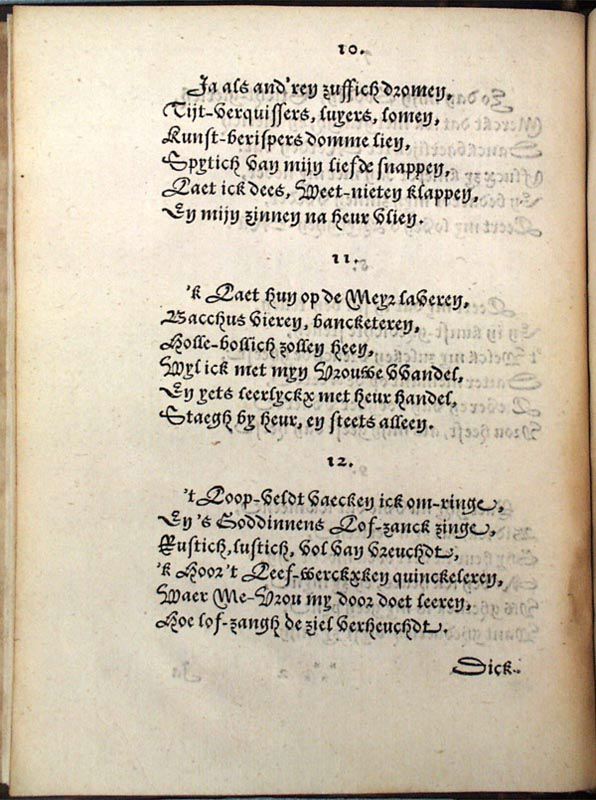 10.
Ja als and'ren zuffich dromen,
Tijt-verquissers, luyers, lomen,
Kunst-berispers domme lien,
Spytich van mijn liefde snappen,
Laet ick dees, Weet-nieten klappen,
En mijn zinnen na heur vlien.
11.
'k Laet hun op de Meyr laveren,
Bacchus vieren, bancketeren,
Holle-bollich zollen heen,
Wyl ick met myn Vrouwe VVandel,
En yets leerlyckx met heur handel,
Staegh by heur, en steets alleen.
12.
't Loop-veldt vaecken ick om-ringe,
En 's Goddinnens Lof-zanck zinge,
Rustich, lustich, vol van vreuchdt,
'k Hoor 't Leef-werckxken quinckeleren,
Waer Me-Vrou my door doet leeren,
Hoe lof-zangh de ziel verheuchdt.
Dick-